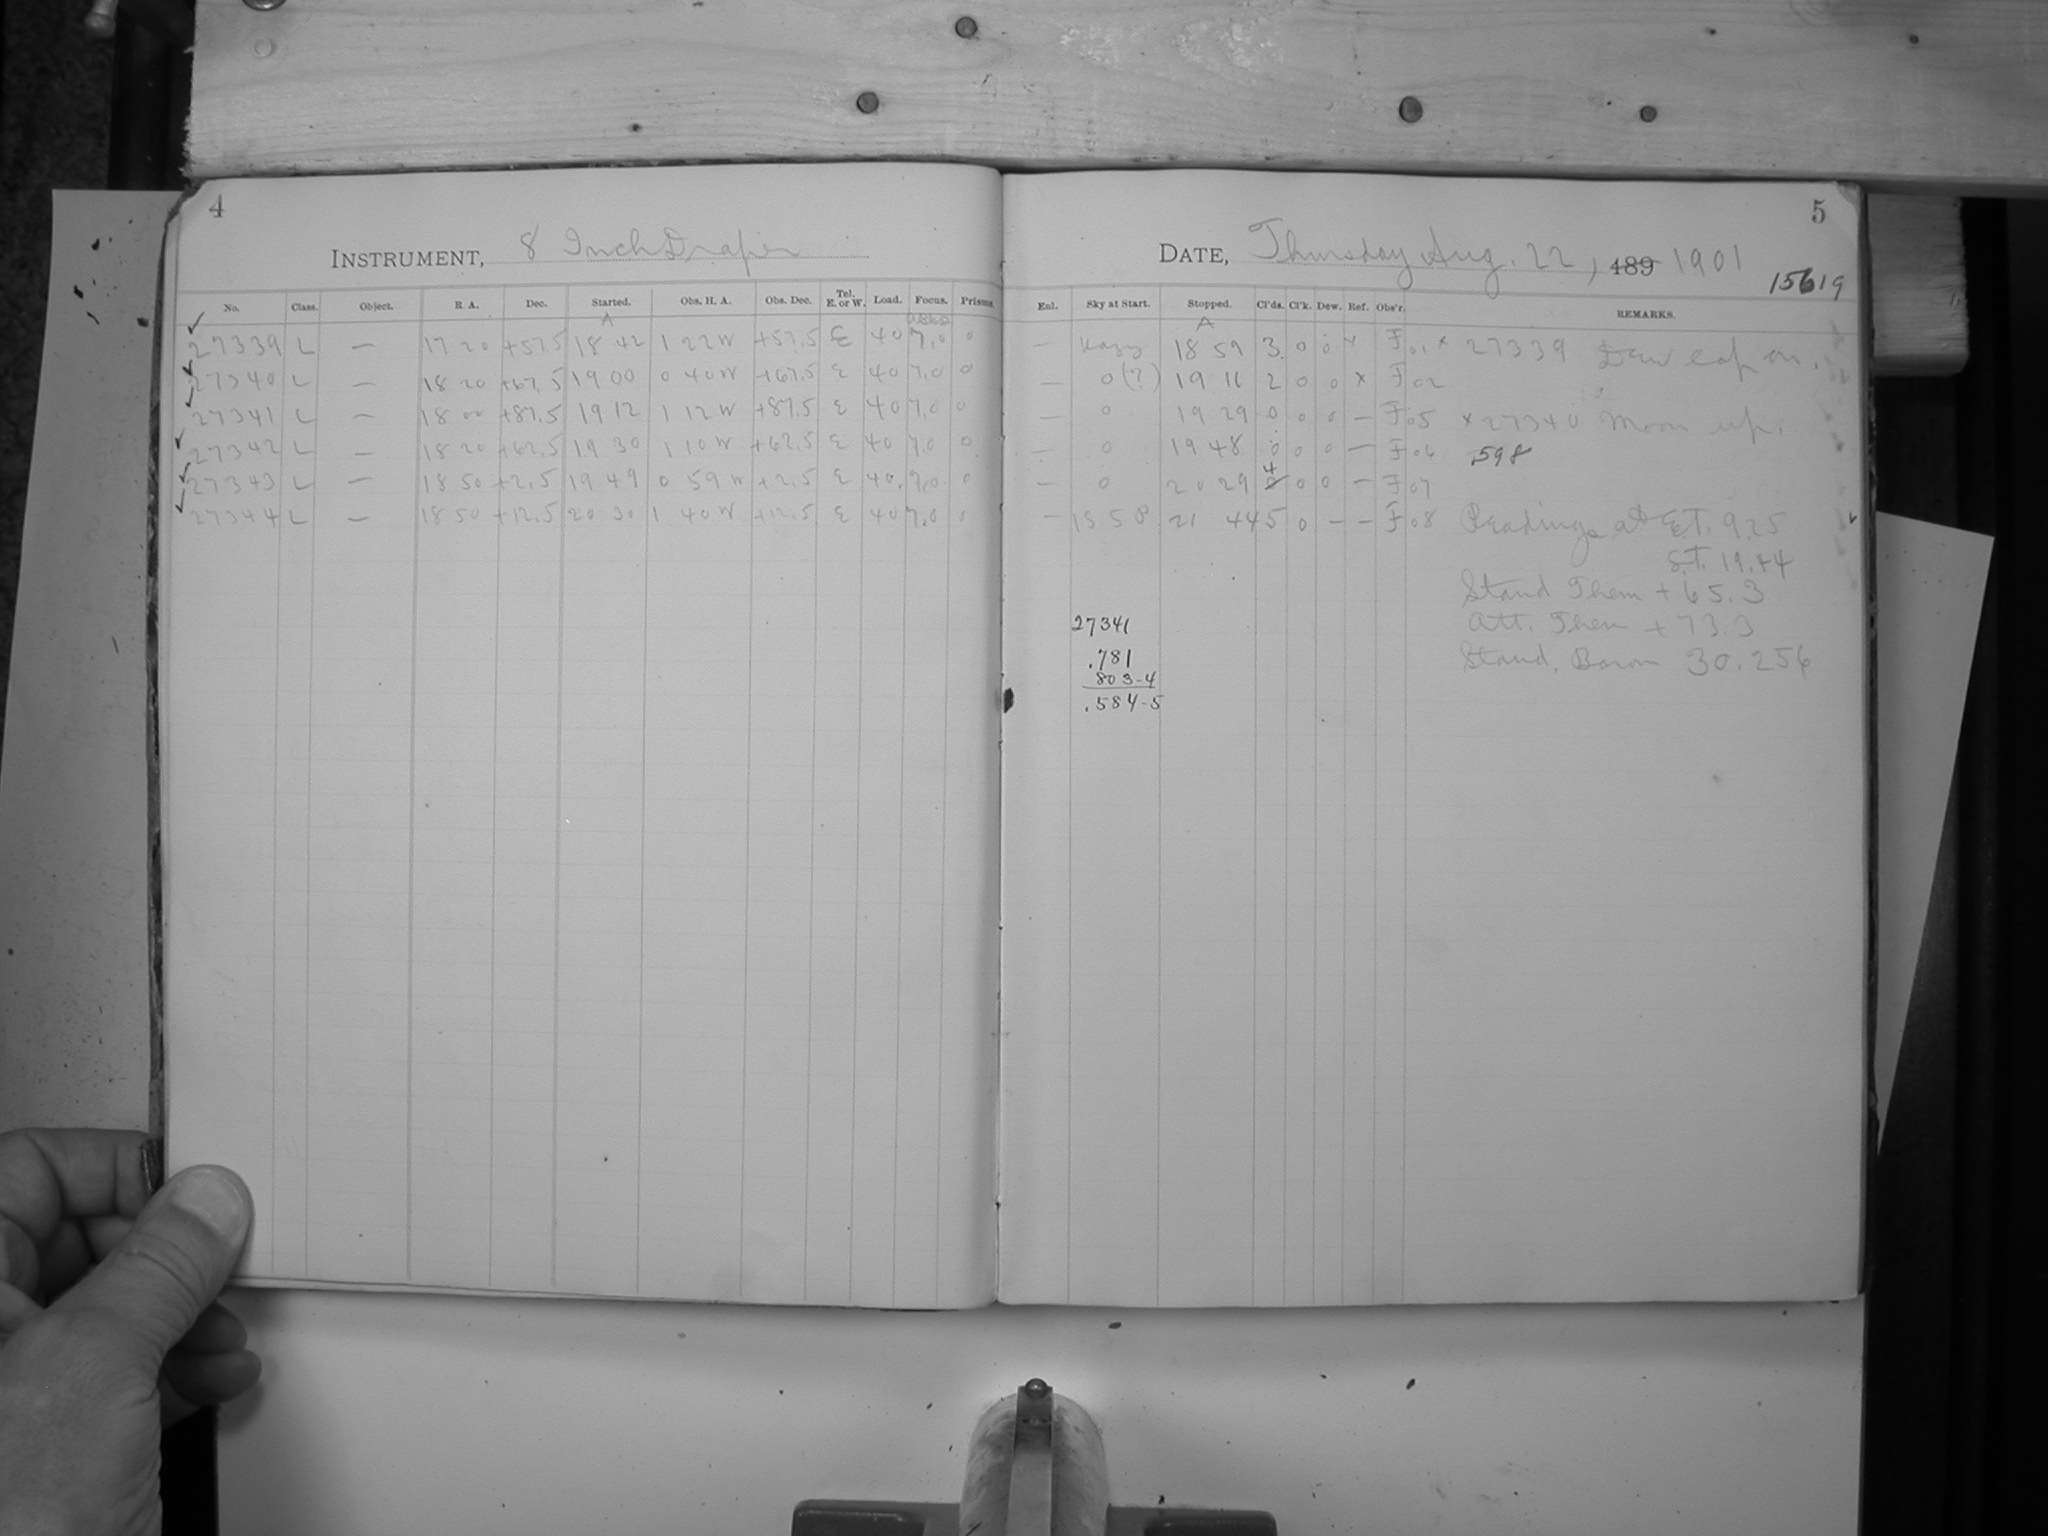 4
INSTRUMENT, 8 Inch Draper
No. Class. Object. R. A. Dec. Started. Obs. H. A. Obs. Dec. Tel. E. or W. Load. Focus. Prisms.
A
27339 L — 17 20 +57.5 18 42 1 22 W +57.5 E 40 7.0 0
27340 L — 18 20 +67.5 19 00 0 40 W +67.5 E 40 7.0 0
27341 L — 18 00 +87.5 19 12 1 12 W +87.5 E 40 7.0 0
27342 L — 18 20 +62.5 19 30 1 10 W +62.5 E 40 7.0 0
27343 L — 18 50 +2.5 19 49 0 59 W +2.5 E 40. 7.0 0
27344 L — 18 50 +12.5 20 30 1 40 W +12.5 E 40 7.0 0
5
DATE, Thursday Aug. 22, 189 1901
15619
Ent. Sky at Start. Stopped. Cl'ds. Cl'k. Dew. Ref. Obs'r. REMARKS.
A
— Hazy 18 59 3 0 0 x F 01 x 27339 Dew cap on.
— 0 (?) 19 11 2 0 0 x F 02
— 0 19 29 0 0 0 — F 05 x 27340 Moon up.
— 0 19 48 0 0 0 — F 06 .598
— 0 20 29 4 0 0 — F 07
— 21 44 5 0 — — F 08 Readings at E.T. 9.25
S.T. 19.44
Stand Them + 65.3
27341 Att. Them + 73.3
.781 Stand. Barom 30.256
803-4
.584-5